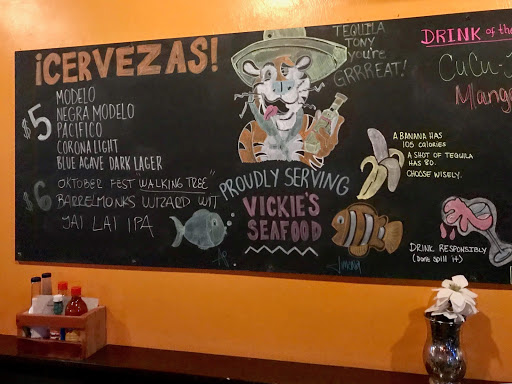 ¡CERVEZAS!
$5
MODELO
NEGRA MODELO
PACIFICO
CORONA LIGHT
BLUE AGAVE DARK LAGER
$6
OKTOBER FEST "WALKING TREE"
BARRELMONKS WIZARD WIT
JAI LAI IPA
TEQUILA
TONY
you're
GRRREAT!
PROUDLY SERVING
VICKIE'S
SEAFOOD
DRINK of the
CUCU-
Mango
A BANANA HAS
105 CALORIES
A SHOT OF TEQUILA
HAS 80.
CHOOSE WISELY.
DRINK RESPONSIBLY
(Don't spill it)